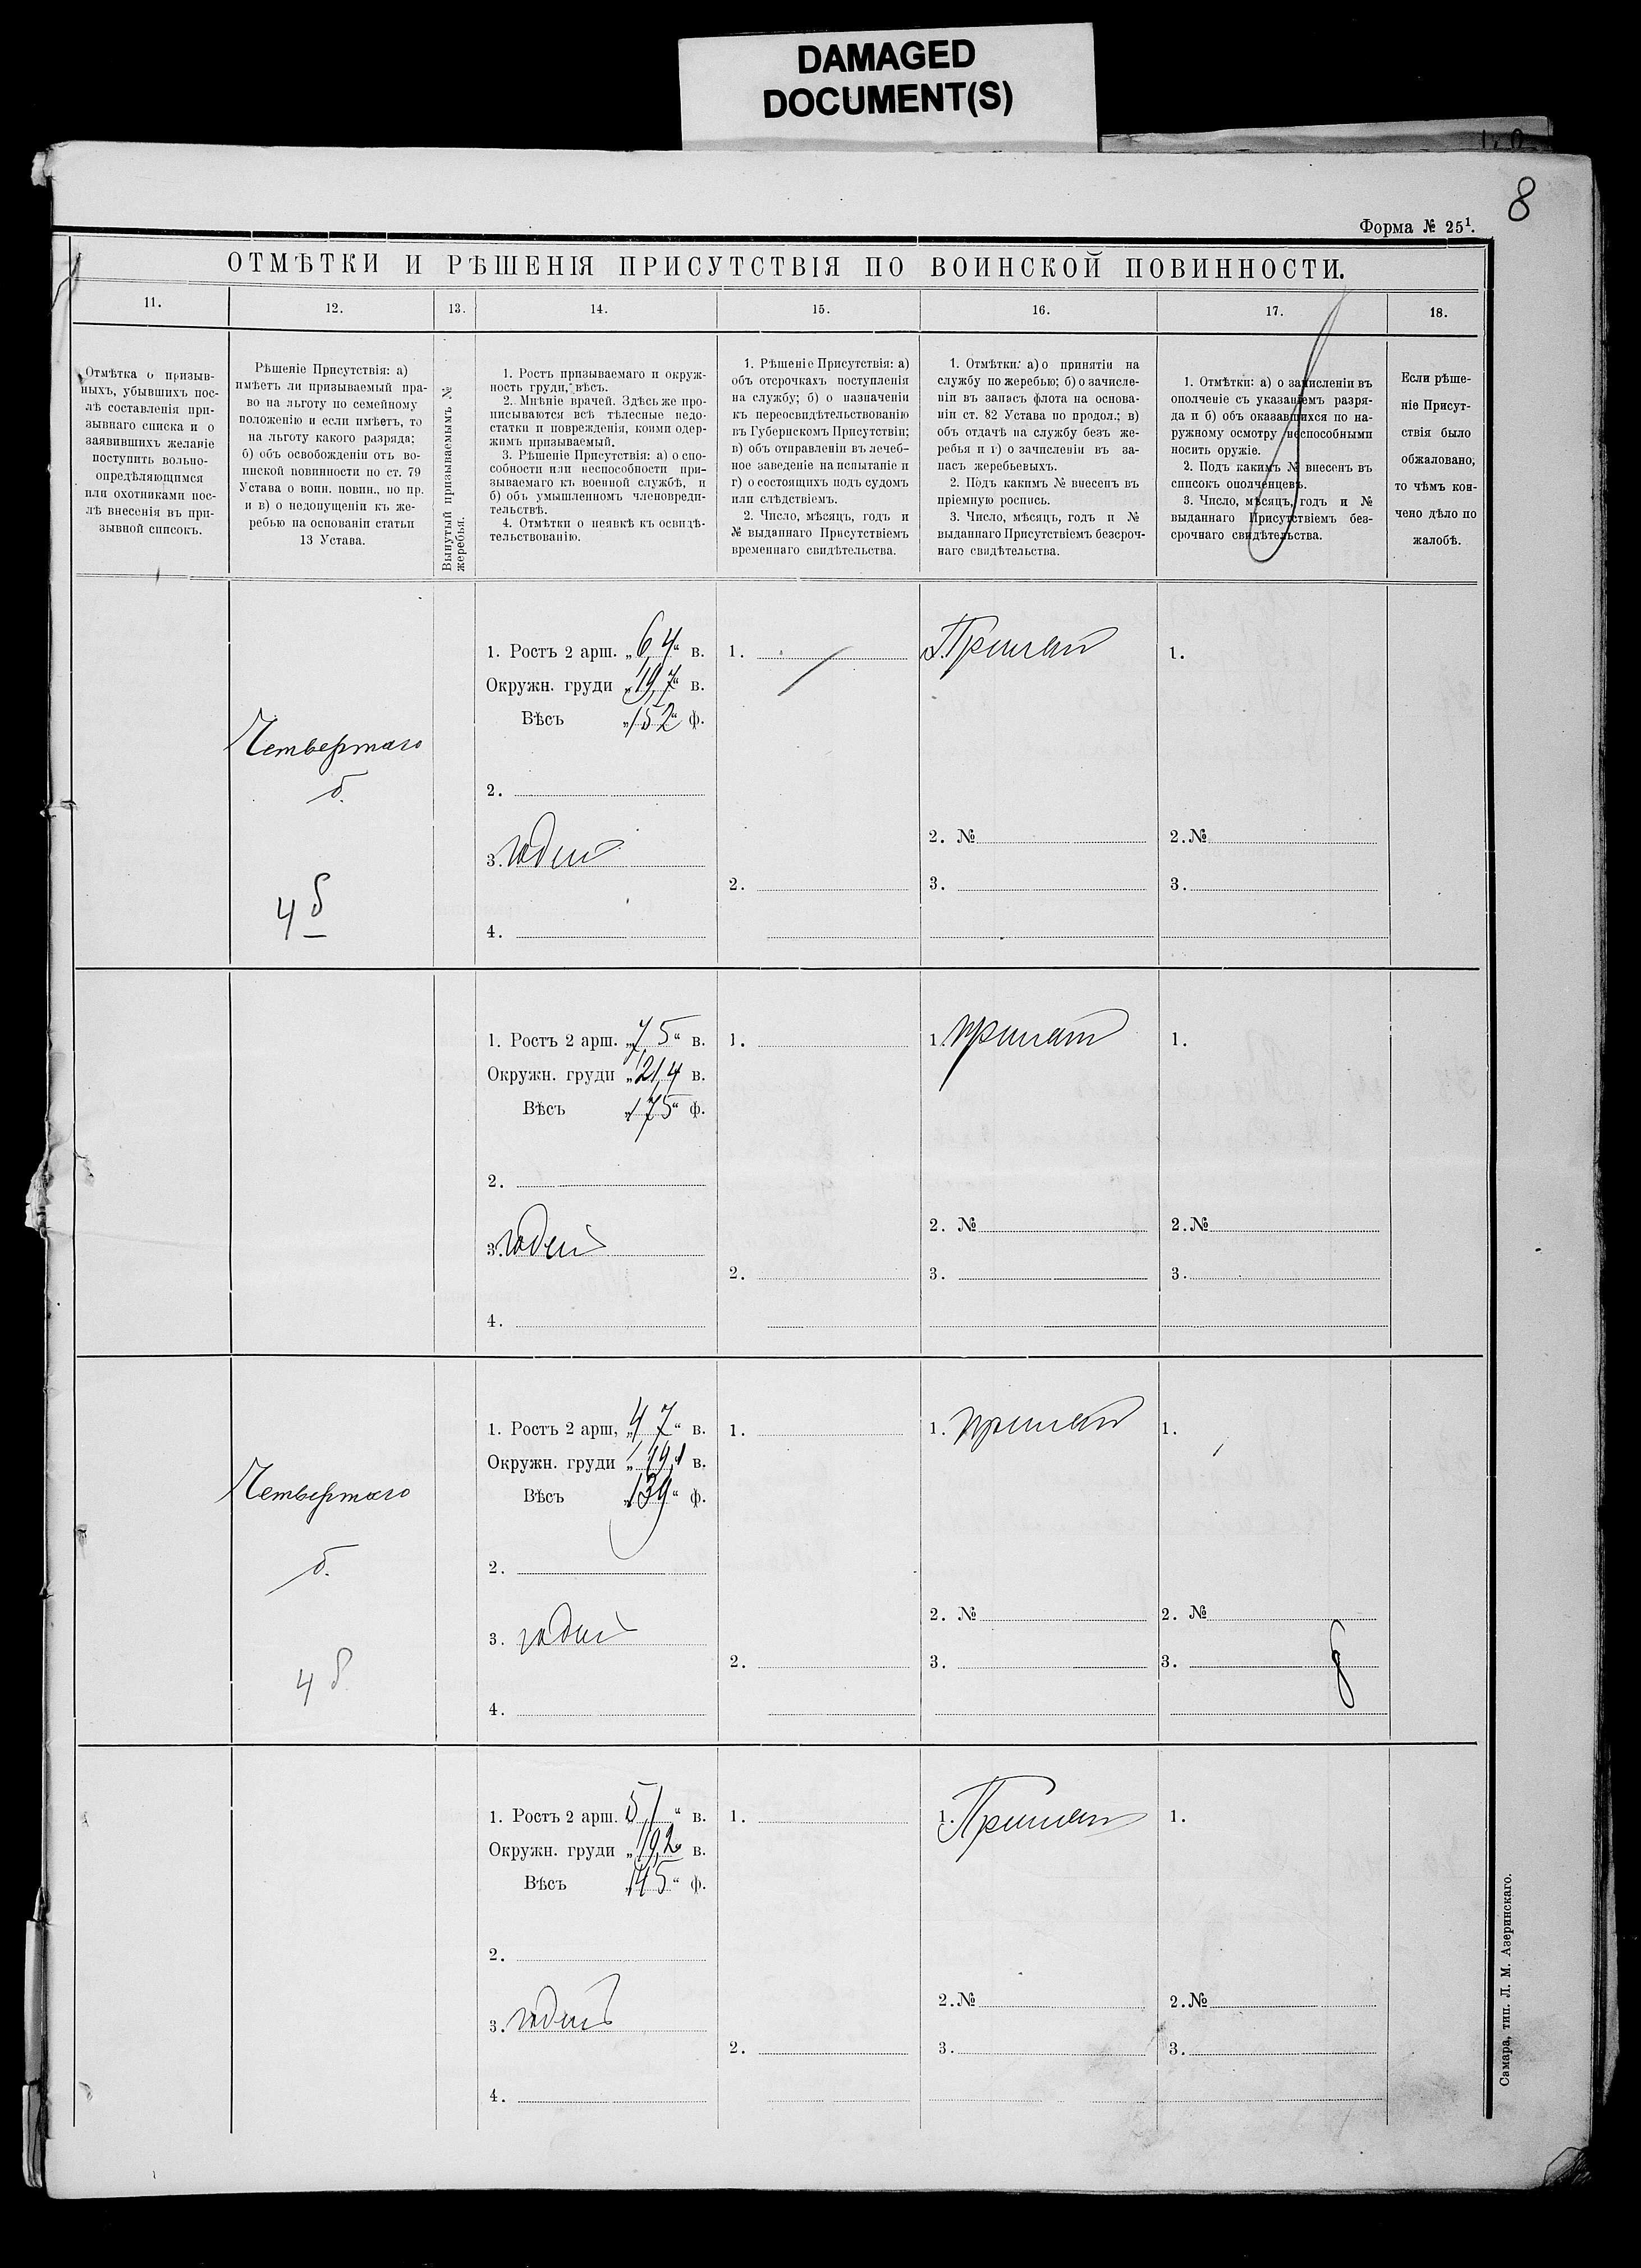 DAMAGED
DOCUMENT(S)
8
Форма № 25¹.
ОТМѢТКИ И РѢШЕНІЯ ПРИСУТСТВІЯ ПО ВОИНСКОЙ ПОВИННОСТИ.
11.
12.
13.
14.
15.
16.
17.
18.
Отмѣтка о призыв-
ныхъ, убывшихъ пос-
лѣ составленія при-
зывнаго списка и о
заявившихъ желаніе
поступить вольно-
опредѣляющимся
или охотниками пос-
лѣ внесенія въ при-
зывной списокъ.
Рѣшеніе Присутствія: а)
имѣетъ ли призываемый пра-
во на льготу по семейному
положенію и если имѣетъ, то
на льготу какого разряда;
б) объ освобожденіи отъ во-
инской повинности по ст. 79
Устава о воин. повин., по пр.
и в) о недопущеніи къ же-
ребью на основаніи статьи
13 Устава.
Вынутый призываемымъ №
жеребья.
1. Ростъ призываемаго и окруж-
ность груди, вѣсъ.
2. Мнѣніе врачей. Здѣсь же про-
писываются всѣ тѣлесные недо-
статки и поврежденія, коими одер-
жимъ призываемый.
3. Рѣшеніе Присутствія: а) о спо-
собности или неспособности при-
зываемаго къ военной службѣ, и
б) объ умышленномъ членовреди-
тельствѣ.
4. Отмѣтки о неявкѣ къ освидѣ-
тельствованію.
1. Рѣшеніе Присутствія: а)
объ отсрочкахъ поступленія
на службу; б) о назначеніи
къ переосвидѣтельствованію
въ Губернскомъ Присутствіи;
в) объ отправленіи въ лечеб-
ное заведеніе на испытаніе и
г) о состоящихъ подъ судомъ
или слѣдствіемъ.
2. Число, мѣсяцъ, годъ и
№ выданнаго Присутствіемъ
временнаго свидѣтельства.
1. Отмѣтки: а) о принятіи на
службу по жеребью; б) о зачисле-
ніи въ запасъ флота на основа-
ніи ст. 82 Устава по продол.; в)
объ отдачѣ на службу безъ же-
ребья и г) о зачисленіи въ за-
пасъ жеребьевыхъ.
2. Подъ какимъ № внесенъ въ
пріемную роспись.
3. Число, мѣсяцъ, годъ и №
выданнаго Присутствіемъ безсроч-
наго свидѣтельства.
1. Отмѣтки: а) о зачисленіи въ
ополченіе съ указаніемъ разря-
да и б) объ оказавшихся по на-
ружному осмотру неспособными
носить оружіе.
2. Подъ какимъ № внесенъ въ
списокъ ополченцевъ.
3. Число, мѣсяцъ, годъ и №
выданнаго Присутствіемъ без-
срочнаго свидѣтельства.
Если рѣше-
ніе Присут-
ствія было
обжаловано,
то чѣмъ кон-
чено дѣло по
жалобѣ.
Четвертаго
б.
4 б
1. Ростъ 2 арш. „6,4“ в.
Окружн. груди „19,7“ в.
Вѣсъ „152“ ф.
2.
3. годен
4.
1.
2.
1. Принят
2. №
3.
1.
2. №
3.
1. Ростъ 2 арш. „7,5“ в.
Окружн. груди „21,4 в.
Вѣсъ „175“ ф.
2.
3. годен
4.
1.
2.
1. принят
2. №
3.
1.
2. №
3.
Четвертаго
б.
4 б
1. Ростъ 2 арш. „4,7“ в.
Окружн. груди „19,1 в.
Вѣсъ „139“ ф.
2.
3. годен
4.
1.
2.
1. принят
2. №
3.
1.
2. №
3.
1. Ростъ 2 арш. 5,1“ в.
Окружн. груди „19,2 в.
Вѣсъ „145“ ф.
2.
3. годенъ
4.
1.
2.
1. Принят
2. №
3.
1.
2. №
3.
Самара, тип. Л. М. Азеринскаго.